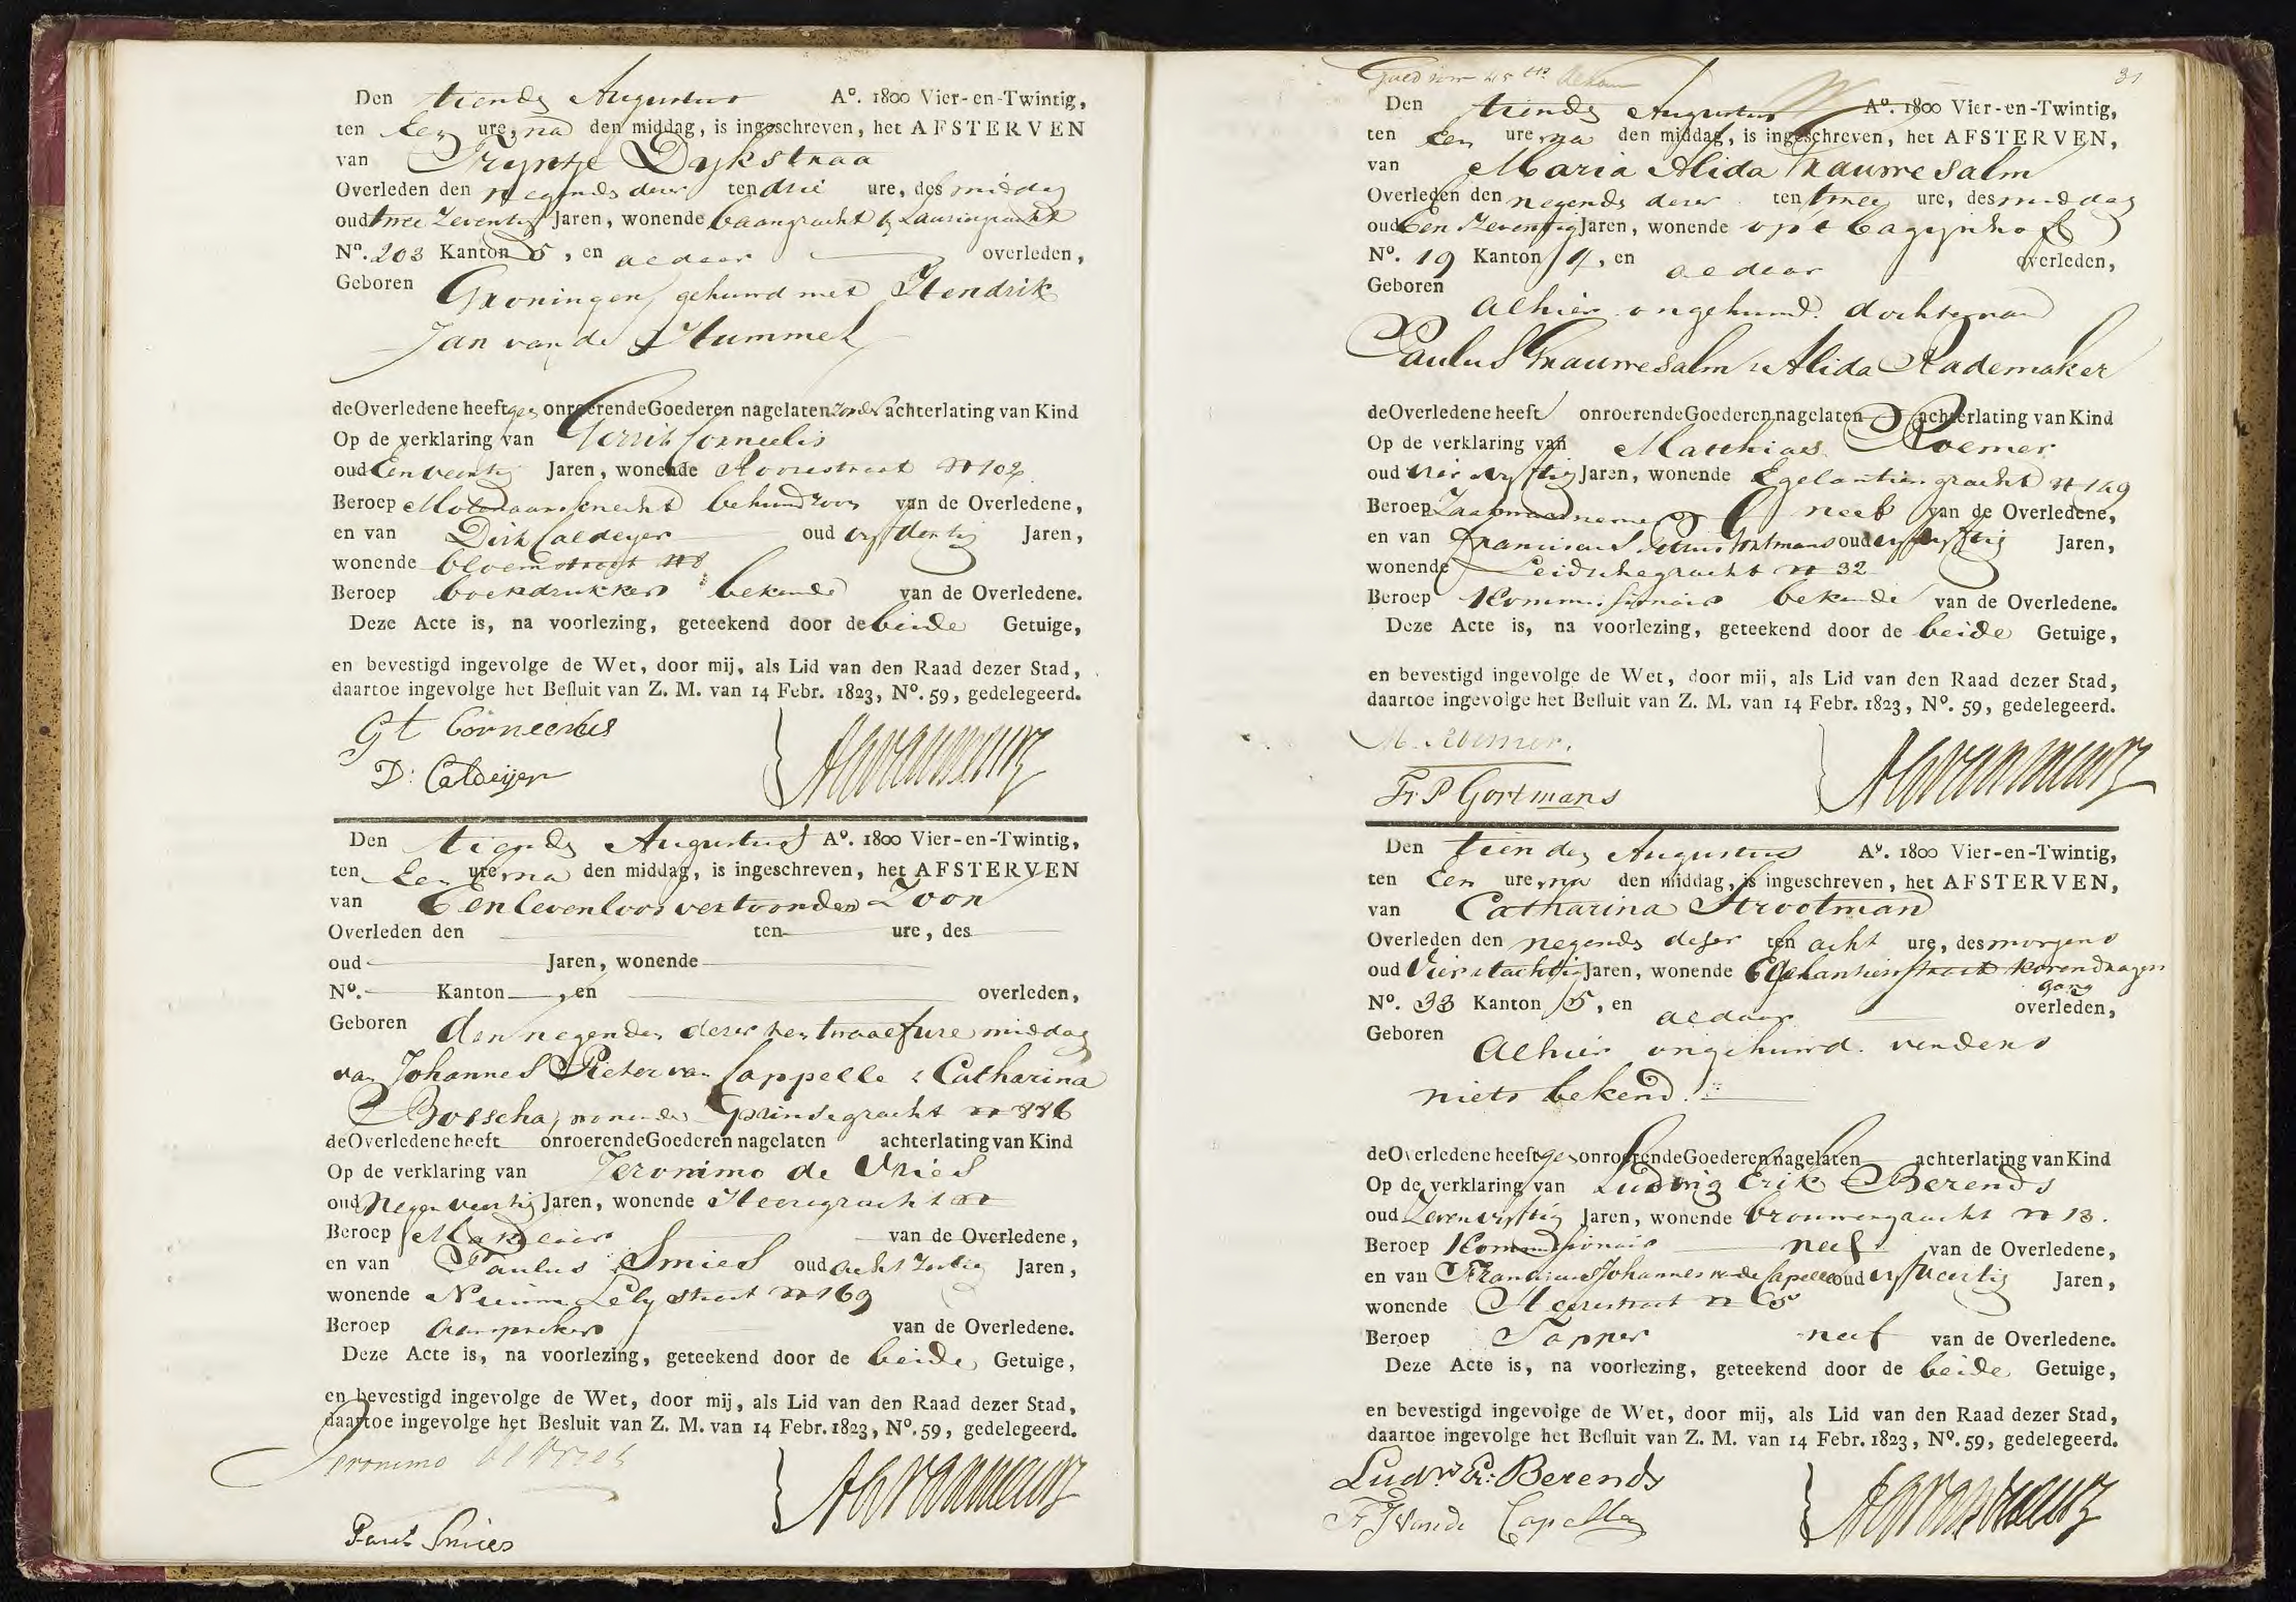 Den tiende Augustus Aº. 1800 Vier-en-Twintig,
ten Een ure, na den middag, is ingeschreven, het AFSTERVEN
van Tryntje Dykstraa
Overleden den negende dezer ten drie ure, des middag
oud twee Zeventig Jaren, wonende baangracht by Lauriergracht
Nº. 203 Kanton 5, en aldaar overleden,
Geboren Groningen gehuwd met Hendrik
Jan van de Hummel
de Overledene heeft geen onroerende Goederen nagelaten zonder achterlating van Kind
Op de verklaring van Gerrit Corneelis
oud Een veertig Jaren, wonende Roosestraat Nº 102
Beroep behuwdzoon van de Overledene,
en van Dirk Caldeyer oud vyf dertig Jaren,
wonende bloemstraat Nº 8
Beroep boekdrukker bekende van de Overledene.
Deze Acte is, na voorlezing, geteekend door de beide Getuige,
en bevestigd ingevolge de Wet, door mij, als Lid van den Raad dezer Stad,
daartoe ingevolge het Besluit van Z. M. van 14 Febr. 1823, Nº. 59, gedelegeerd.
Gt Corneelis
D: Caldeijer
Den tiende Augustus Aº. 1800 Vier-en-Twintig,
ten Een ure, na den middag, is ingeschreven, het AFSTERVEN
van Een levenloos vertoonden Zoon
Overleden den ten ure, des
oud Jaren, wonende
Nº. Kanton , en overleden,
Geboren den negenden dezer ten twaalf ure middag
van Johannes Pieter van Cappelle & Catharina
Bosscha, wonende Prinsegracht nº 886
de Overledene heeft onroerende Goederen nagelaten achterlating van Kind
Op de verklaring van Jeronimo de Vries
oud Negen veertig Jaren, wonende Heeregracht nº
Beroep Makelaar van de Overledene,
en van Paulus Smies oud acht Zestig Jaren,
wonende Nieuwe Lely straat nº 169
Beroep aanspreker van de Overledene.
Deze Acte is, na voorlezing, geteekend door de beide Getuige,
en bevestigd ingevolge de Wet, door mij, als Lid van den Raad dezer Stad,
daartoe ingevolge het Besluit van Z. M. van 14 Febr. 1823, Nº. 59, gedelegeerd.
Jeronimo de Vries
Paul Smies
31
Den tiende Augustus Aº. 1800 Vier-en-Twintig,
ten Een ure, na den middag, is ingeschreven, het AFSTERVEN,
van Maria Alida Grauwesalm
Overleden den negende dezer ten twee ure, des middag
oud Een Zeventig Jaren, wonende op 't Bagynhof
Nº. 19 Kanton 4, en aldaar overleden,
Geboren Alhier ongehuwd. dochter van
Paulus Grauwesalm & Alida Rademaker
de Overledene heeft onroerende Goederen nagelaten achterlating van Kind
Op de verklaring van Matthias Roemer
oud vier vyftig Jaren, wonende Egelantiersgracht nº 149
Beroep Zaakwaarnemer neef van de Overledene,
en van Franciscus Petrus Gortmans oud vyf vyftig Jaren,
wonende Leidschegracht nº 32
Beroep Kommissionair bekende van de Overledene.
Deze Acte is, na voorlezing, geteekend door de beide Getuige,
en bevestigd ingevolge de Wet, door mij, als Lid van den Raad dezer Stad,
daartoe ingevolge het Besluit van Z. M. van 14 Febr. 1823, Nº. 59, gedelegeerd.
M. Roemer.
Fr P Gortmans
Den tiende Augustus Aº. 1800 Vier-en-Twintig,
ten Een ure, na den middag, is ingeschreven, het AFSTERVEN,
van Catharina Strootman
Overleden den negende dezer ten acht ure, des morgens
oud Vier & tachtig Jaren, wonende Egelantierstraat Korendrager
gang
Nº. 33 Kanton 5, en aldaar overleden,
Geboren Alhier ongehuwd. verders
niets bekend.
de Overledene heeft geen onroerende Goederen nagelaten achterlating van Kind
Op de verklaring van Ludwig Erik Berends
oud Zeven vyftig Jaren, wonende Brouwersgracht nº 13.
Beroep Kommissionair neef van de Overledene,
en van Franciscus Johannes van de Capelle oud vyf veertig Jaren,
wonende Heerestraat nº 65
Beroep Tapper neef van de Overledene.
Deze Acte is, na voorlezing, geteekend door de beide Getuige,
en bevestigd ingevolge de Wet, door mij, als Lid van den Raad dezer Stad,
daartoe ingevolge het Besluit van Z. M. van 14 Febr. 1823, Nº. 59, gedelegeerd.
Ludw Er: Berends
Fr J van de Capelle